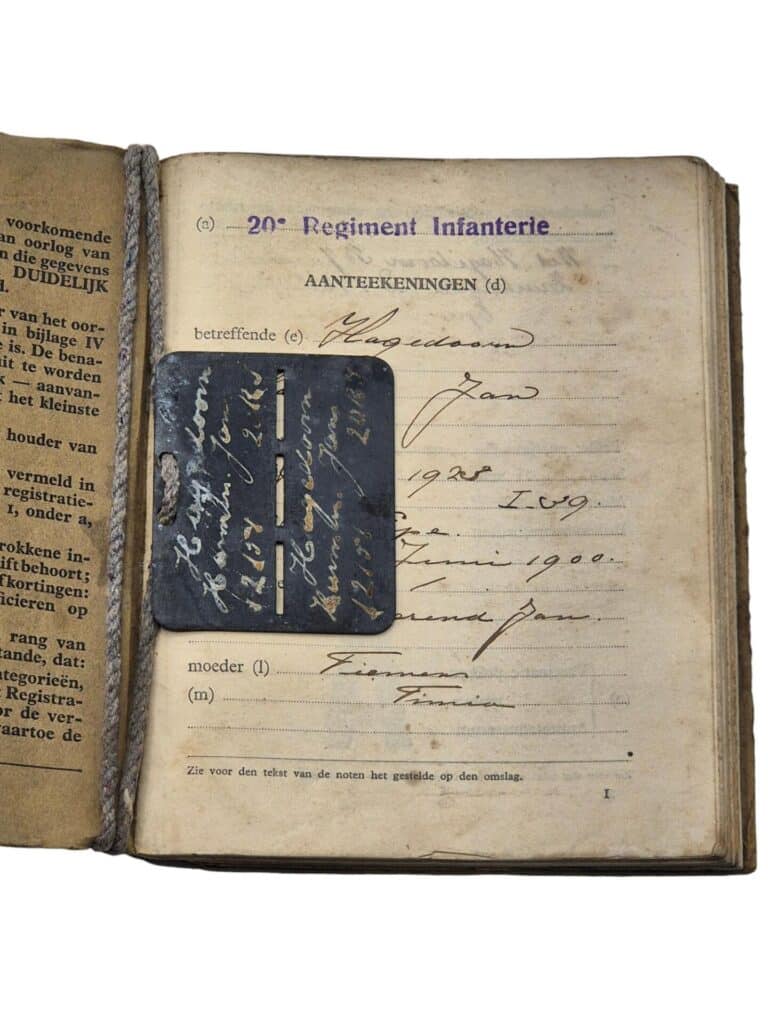 voorkomende
an oorlog van
n die gegevens
DUIDELIJK
d.
r van het oor-
in bijlage IV
e is. De bena-
uit te worden
k — aanvan-
t het kleinste
houder van
vermeld in
registratie-
1, onder a,
rokkene in-
ift behoort;
fkortingen:
ficieren op
rang van
tande, dat:
ategorieën,
t Registra-
or de ver-
vaartoe de
(a) 20e Regiment Infanterie
AANTEEKENINGEN (d)
betreffende (e) Hagedoorn
Jan
1928
I-39.
Epe.
Juni 1900.
erend Jan.
moeder (l) Fiemens
(m)
Zie voor den tekst van de noten het gestelde op den omslag.
1
Hagedoorn
Jan
Hagedoorn